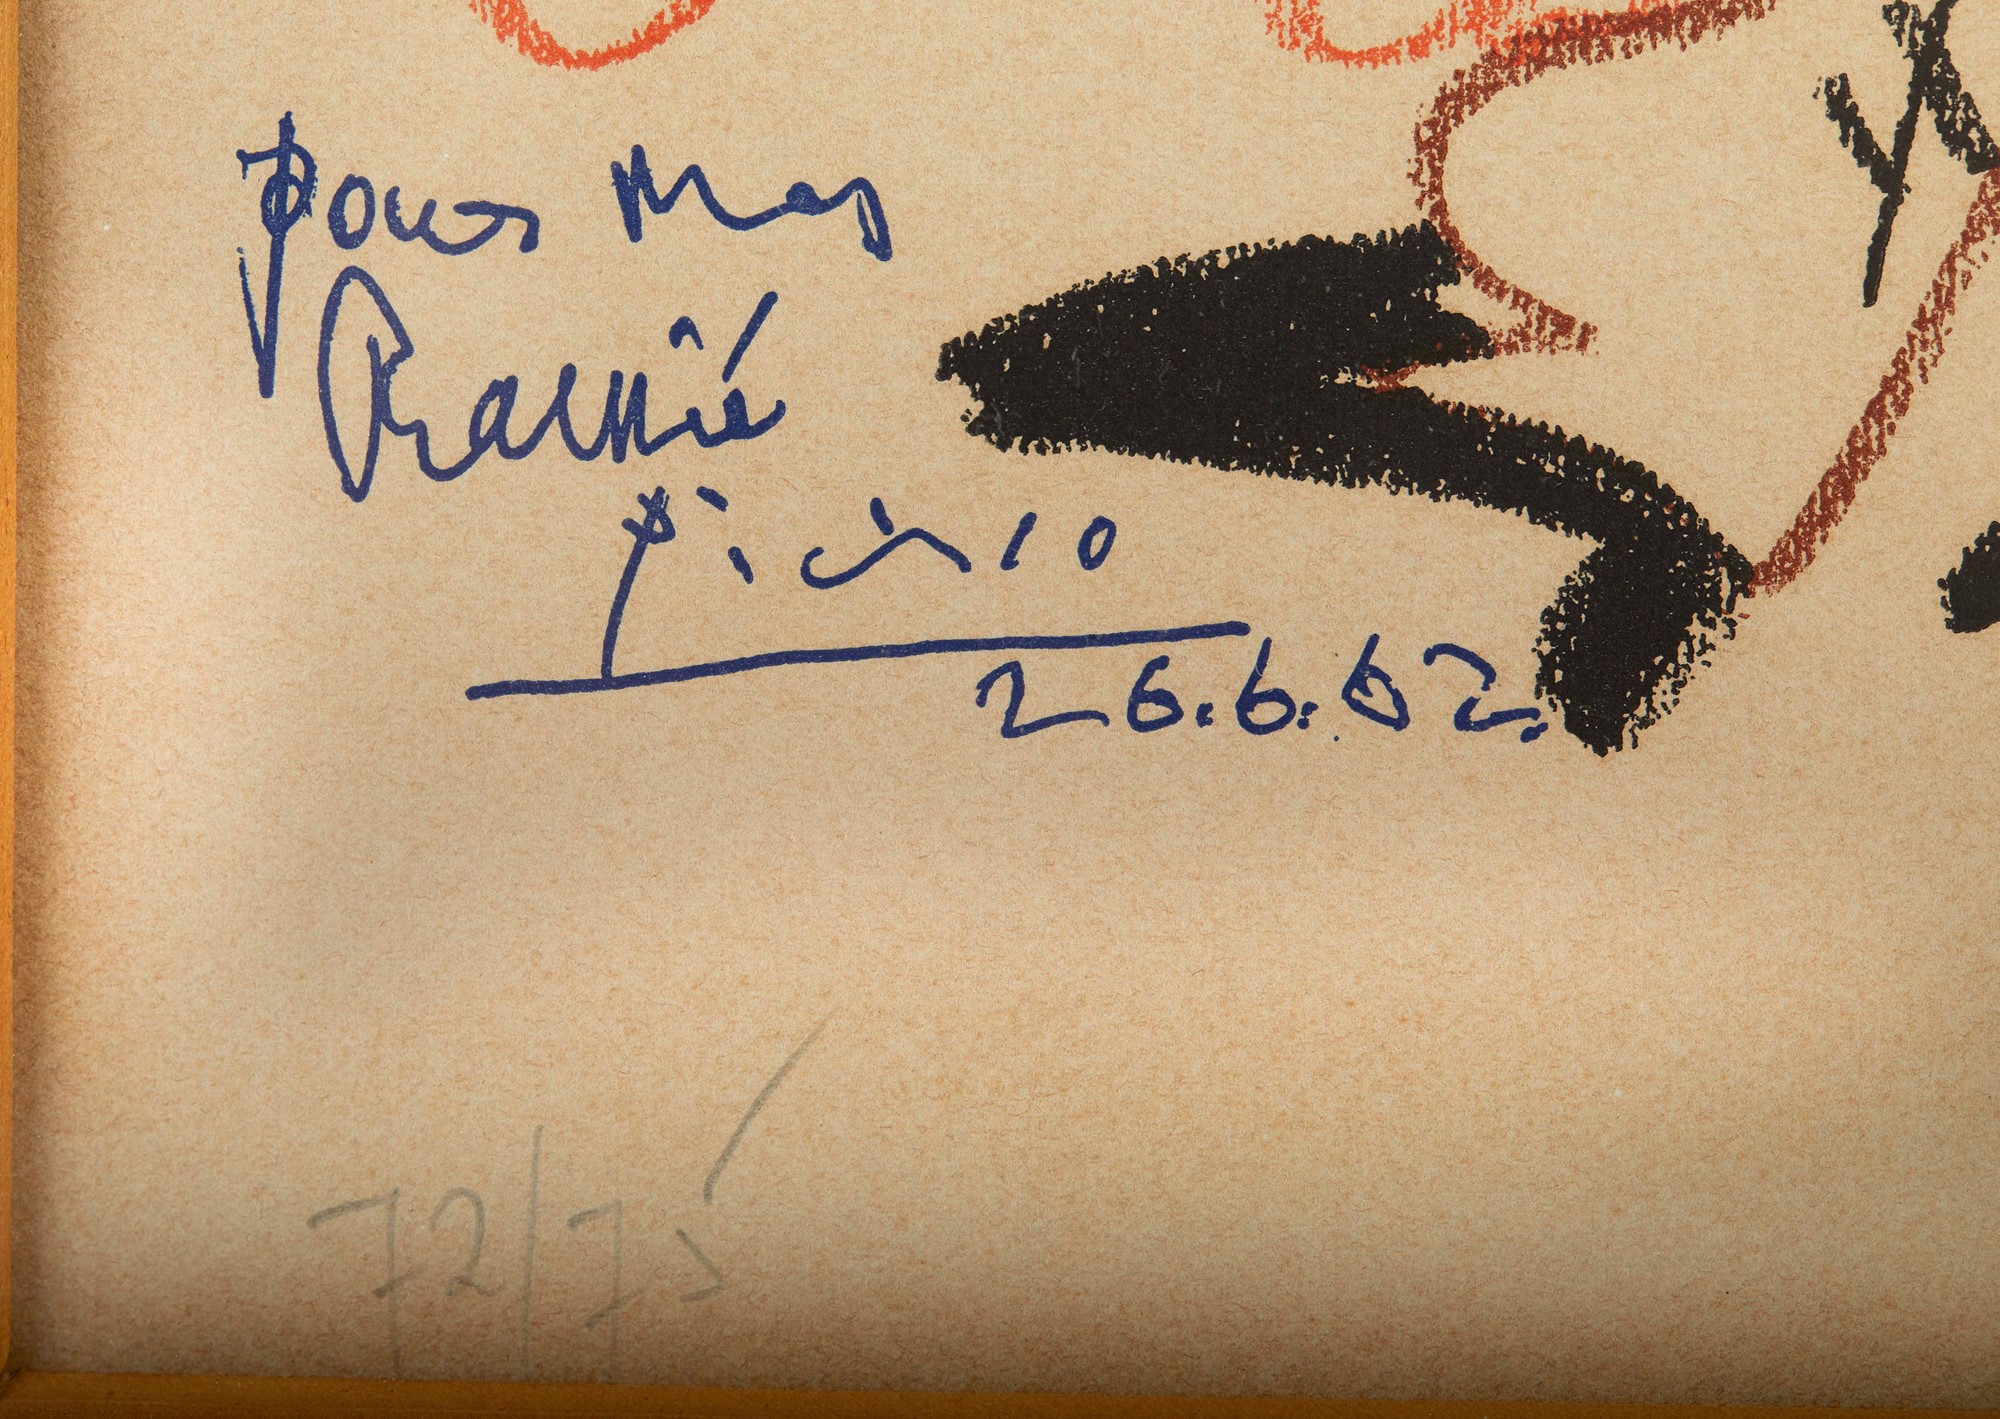 pour Mad
Ramié
Picasso
26.6.62.
72/75